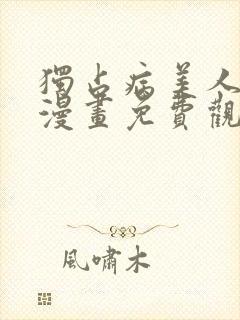 獨占病美人
漫畫免費觀
風嘯木